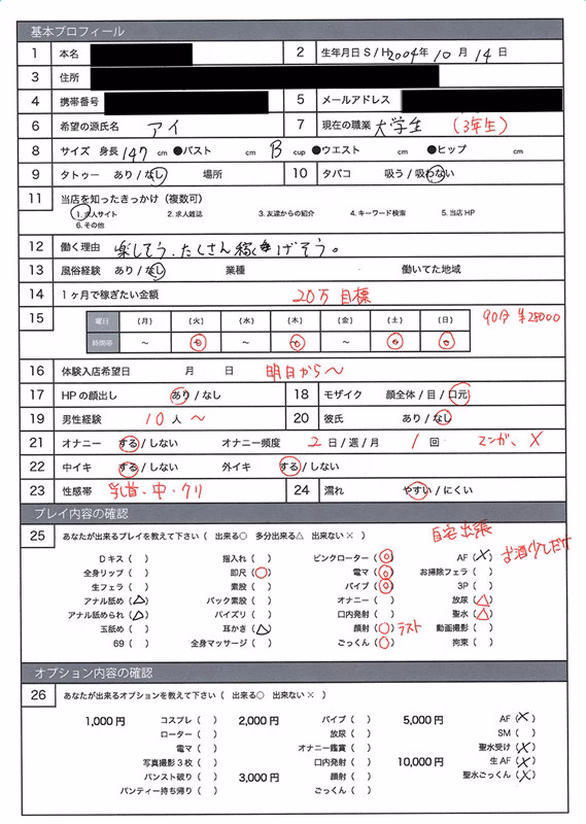 基本プロフィール
1 本名 2 生年月日 S / H 2004年 10月 14日
3 住所
4 携帯番号 5 メールアドレス
6 希望の源氏名 アイ 7 現在の職業 大学生 (3年生)
8 サイズ 身長 147 cm ●バスト cm B cup ●ウエスト cm ●ヒップ cm
9 タトゥー あり / なし 場所 10 タバコ 吸う / 吸わない
11 当店を知ったきっかけ（複数可）
1. 求人サイト 2. 求人雑誌 3. 友達からの紹介 4. キーワード検索 5. 当店 HP
6. その他
12 働く理由 楽しそう、たくさん稼げそう。
13 風俗経験 あり / なし 業種 働いてた地域
14 1ヶ月で稼ぎたい金額 20万 目標
15 曜日 (月) (火) (水) (木) (金) (土) (日) 90分 ¥25000
時間帯 ～ ～ ～
16 体験入店希望日 月 日 明日から～
17 HPの顔出し あり / なし 18 モザイク 顔全体 / 目 / 口元
19 男性経験 10人 ～ 20 彼氏 あり / なし
21 オナニー する / しない オナニー頻度 2 日 / 週 / 月 1 回 マンガ、X
22 中イキ する / しない 外イキ する / しない
23 性感帯 乳首・中・クリ 24 濡れ やすい / にくい
プレイ内容の確認
25 あなたが出来るプレイを教えて下さい（ 出来る○ 多分出来る△ 出来ない× ） 自宅出張
お酒少しだけ
Dキス（ ） 指入れ（ ） ピンクローター（◎） AF（×）
全身リップ（ ） 即尺（○） 電マ（◎） お掃除フェラ（ ）
生フェラ（ ） 素股（ ） バイブ（◎） 3P（ ）
アナル舐め（△） バック素股（ ） オナニー（ ） 放尿（△）
アナル舐められ（△） パイズリ（ ） 口内発射（ ） 聖水（△）
玉舐め（ ） 耳かき（△） 顔射（○）ラスト 動画撮影（ ）
69（ ） 全身マッサージ（ ） ごっくん（○） 拘束（ ）
オプション内容の確認
26 あなたが出来るオプションを教えて下さい（ 出来る○ 出来ない× ）
1,000円 コスプレ（ ） 2,000円 バイブ（ ） 5,000円 AF（×）
ローター（ ） 放尿（ ） SM（ ）
電マ（ ） オナニー鑑賞（ ） 聖水受け（×）
写真撮影3枚（ ） 口内発射（ ） 10,000円 生AF（×）
パンスト破り（ ） 3,000円 顔射（ ） 聖水ごっくん（×）
パンティー持ち帰り（ ） ごっくん（ ）